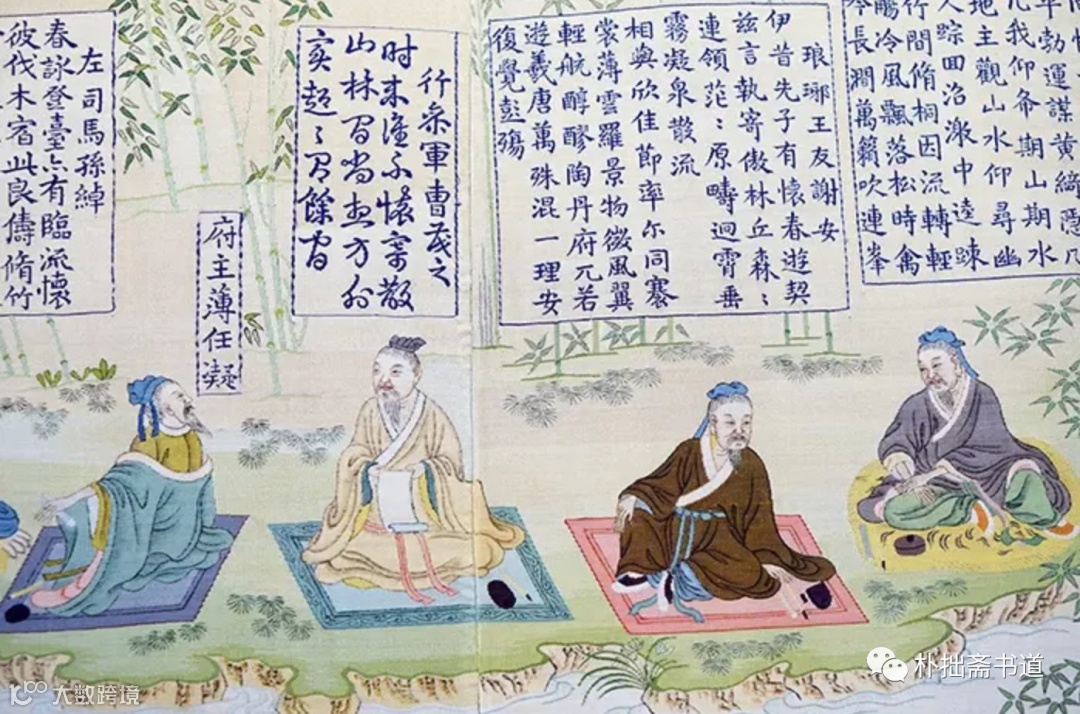 勃運謀黄綺隱几
凡我仰希期山期水
地主觀山水仰尋幽
人踪回沼激中逵踈
竹間脩桐因流轉輕
觴冷風飄落松時禽
吟長澗萬籟吹連峯
琅瑘王友謝安
伊昔先子有懷春遊契
茲言執寄傲林丘森〻
連領茫〻原疇迴霄垂
霧凝泉散流
相與欣佳節率尔同褰
裳薄雲羅景物微風翼
輕航醇醪陶丹府兀若
遊羲唐萬殊混一理安
復覺彭殤
行叅軍曹茂之
时来誰不懷寄散
山林間尚想方外
賓超〻有餘閒
府主薄任凝
左司馬孫綽
春詠登臺亦有臨流懷
彼伐木宿此良儔脩竹
朴拙斋书道
大数跨境